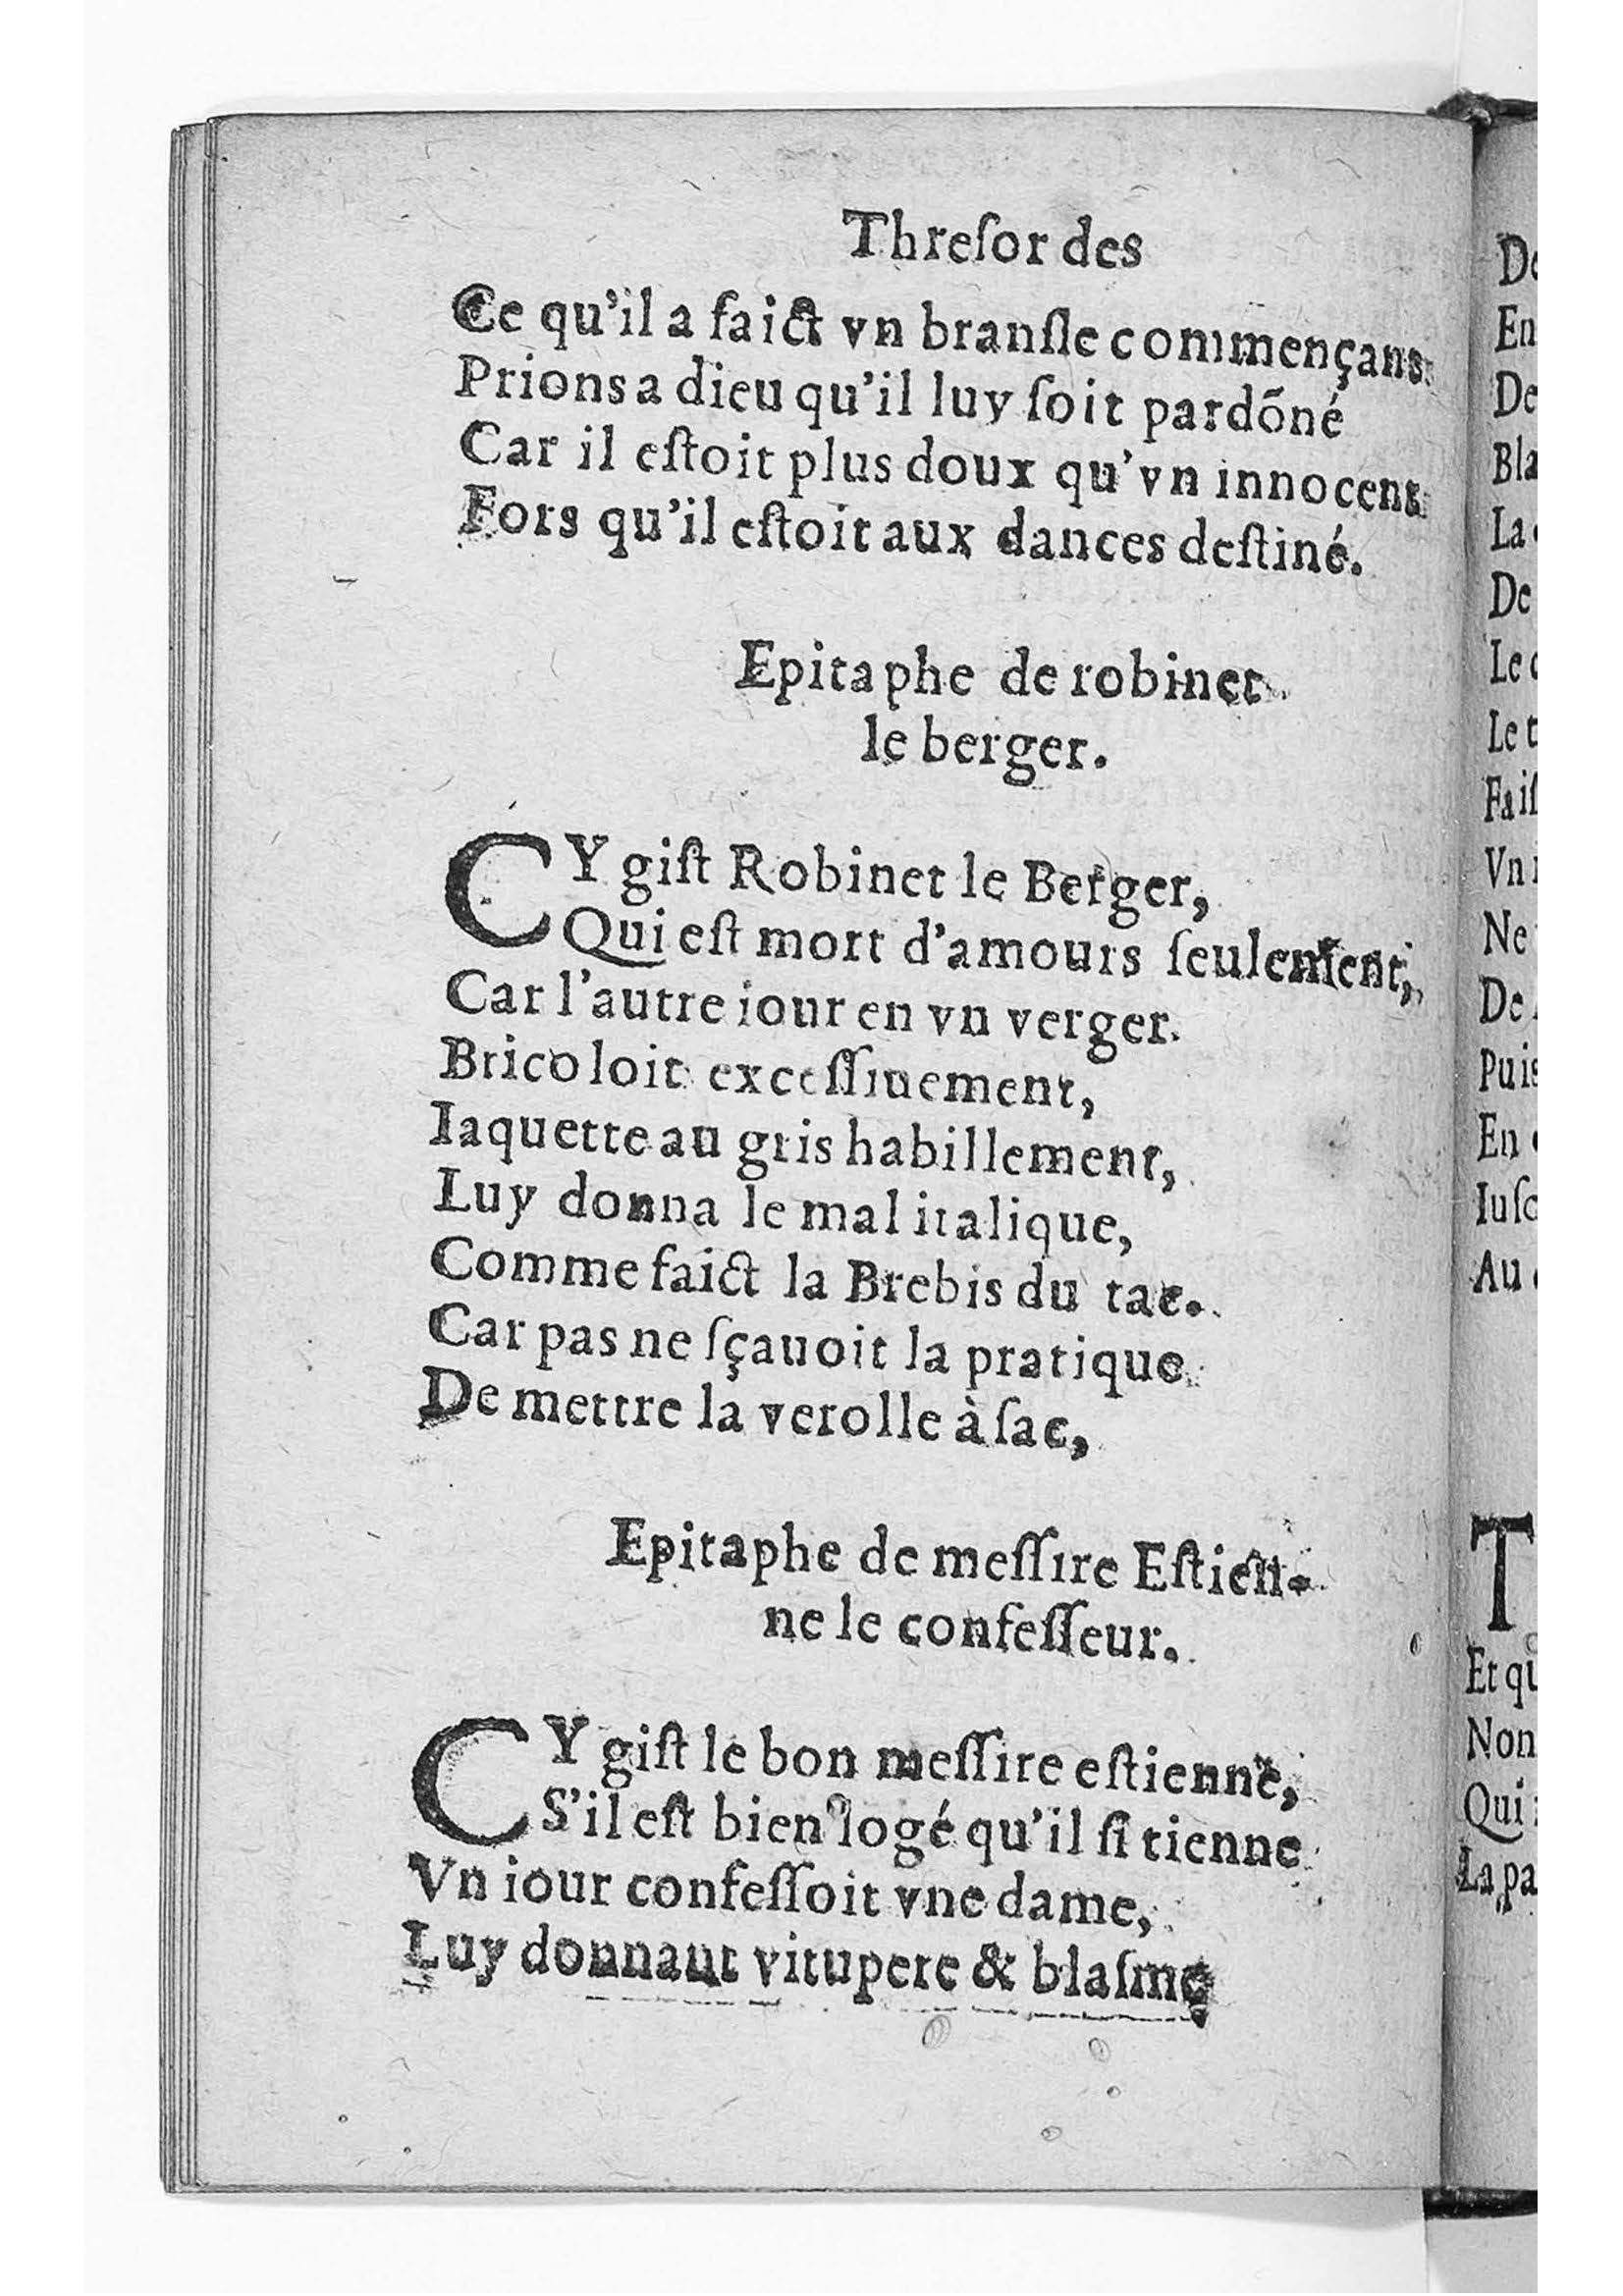 Threſor des
Ce qu'il a faict vn branſle commençant
Prions a dieu qu'il luy ſoit pardõné
Car il eſtoit plus doux qu'vn innocent
Fors qu'il eſtoit aux dances deſtiné.
Epitaphe de robinet
le berger.
CY giſt Robinet le Berger,
Qui eſt mort d'amours ſeulement,
Car l'autre iour en vn verger.
Bricoloit exceſſiuement,
Iaquette au gris habillement,
Luy donna le mal italique,
Comme faict la Brebis du tac.
Car pas ne ſçauoit la pratique
De mettre la verolle à ſac,
Epitaphe de meſſire Eſtien-
ne le confeſſeur.
CY giſt le bon meſſire eſtienne,
S'il eſt bien logé qu'il ſi tienne
Vn iour confeſſoit vne dame,
Luy donnant vitupere & blaſme
En
De
La
De
Le
Le
Vn
Ne
De
Puis
En
Au
T
Et
Non
Qui
La